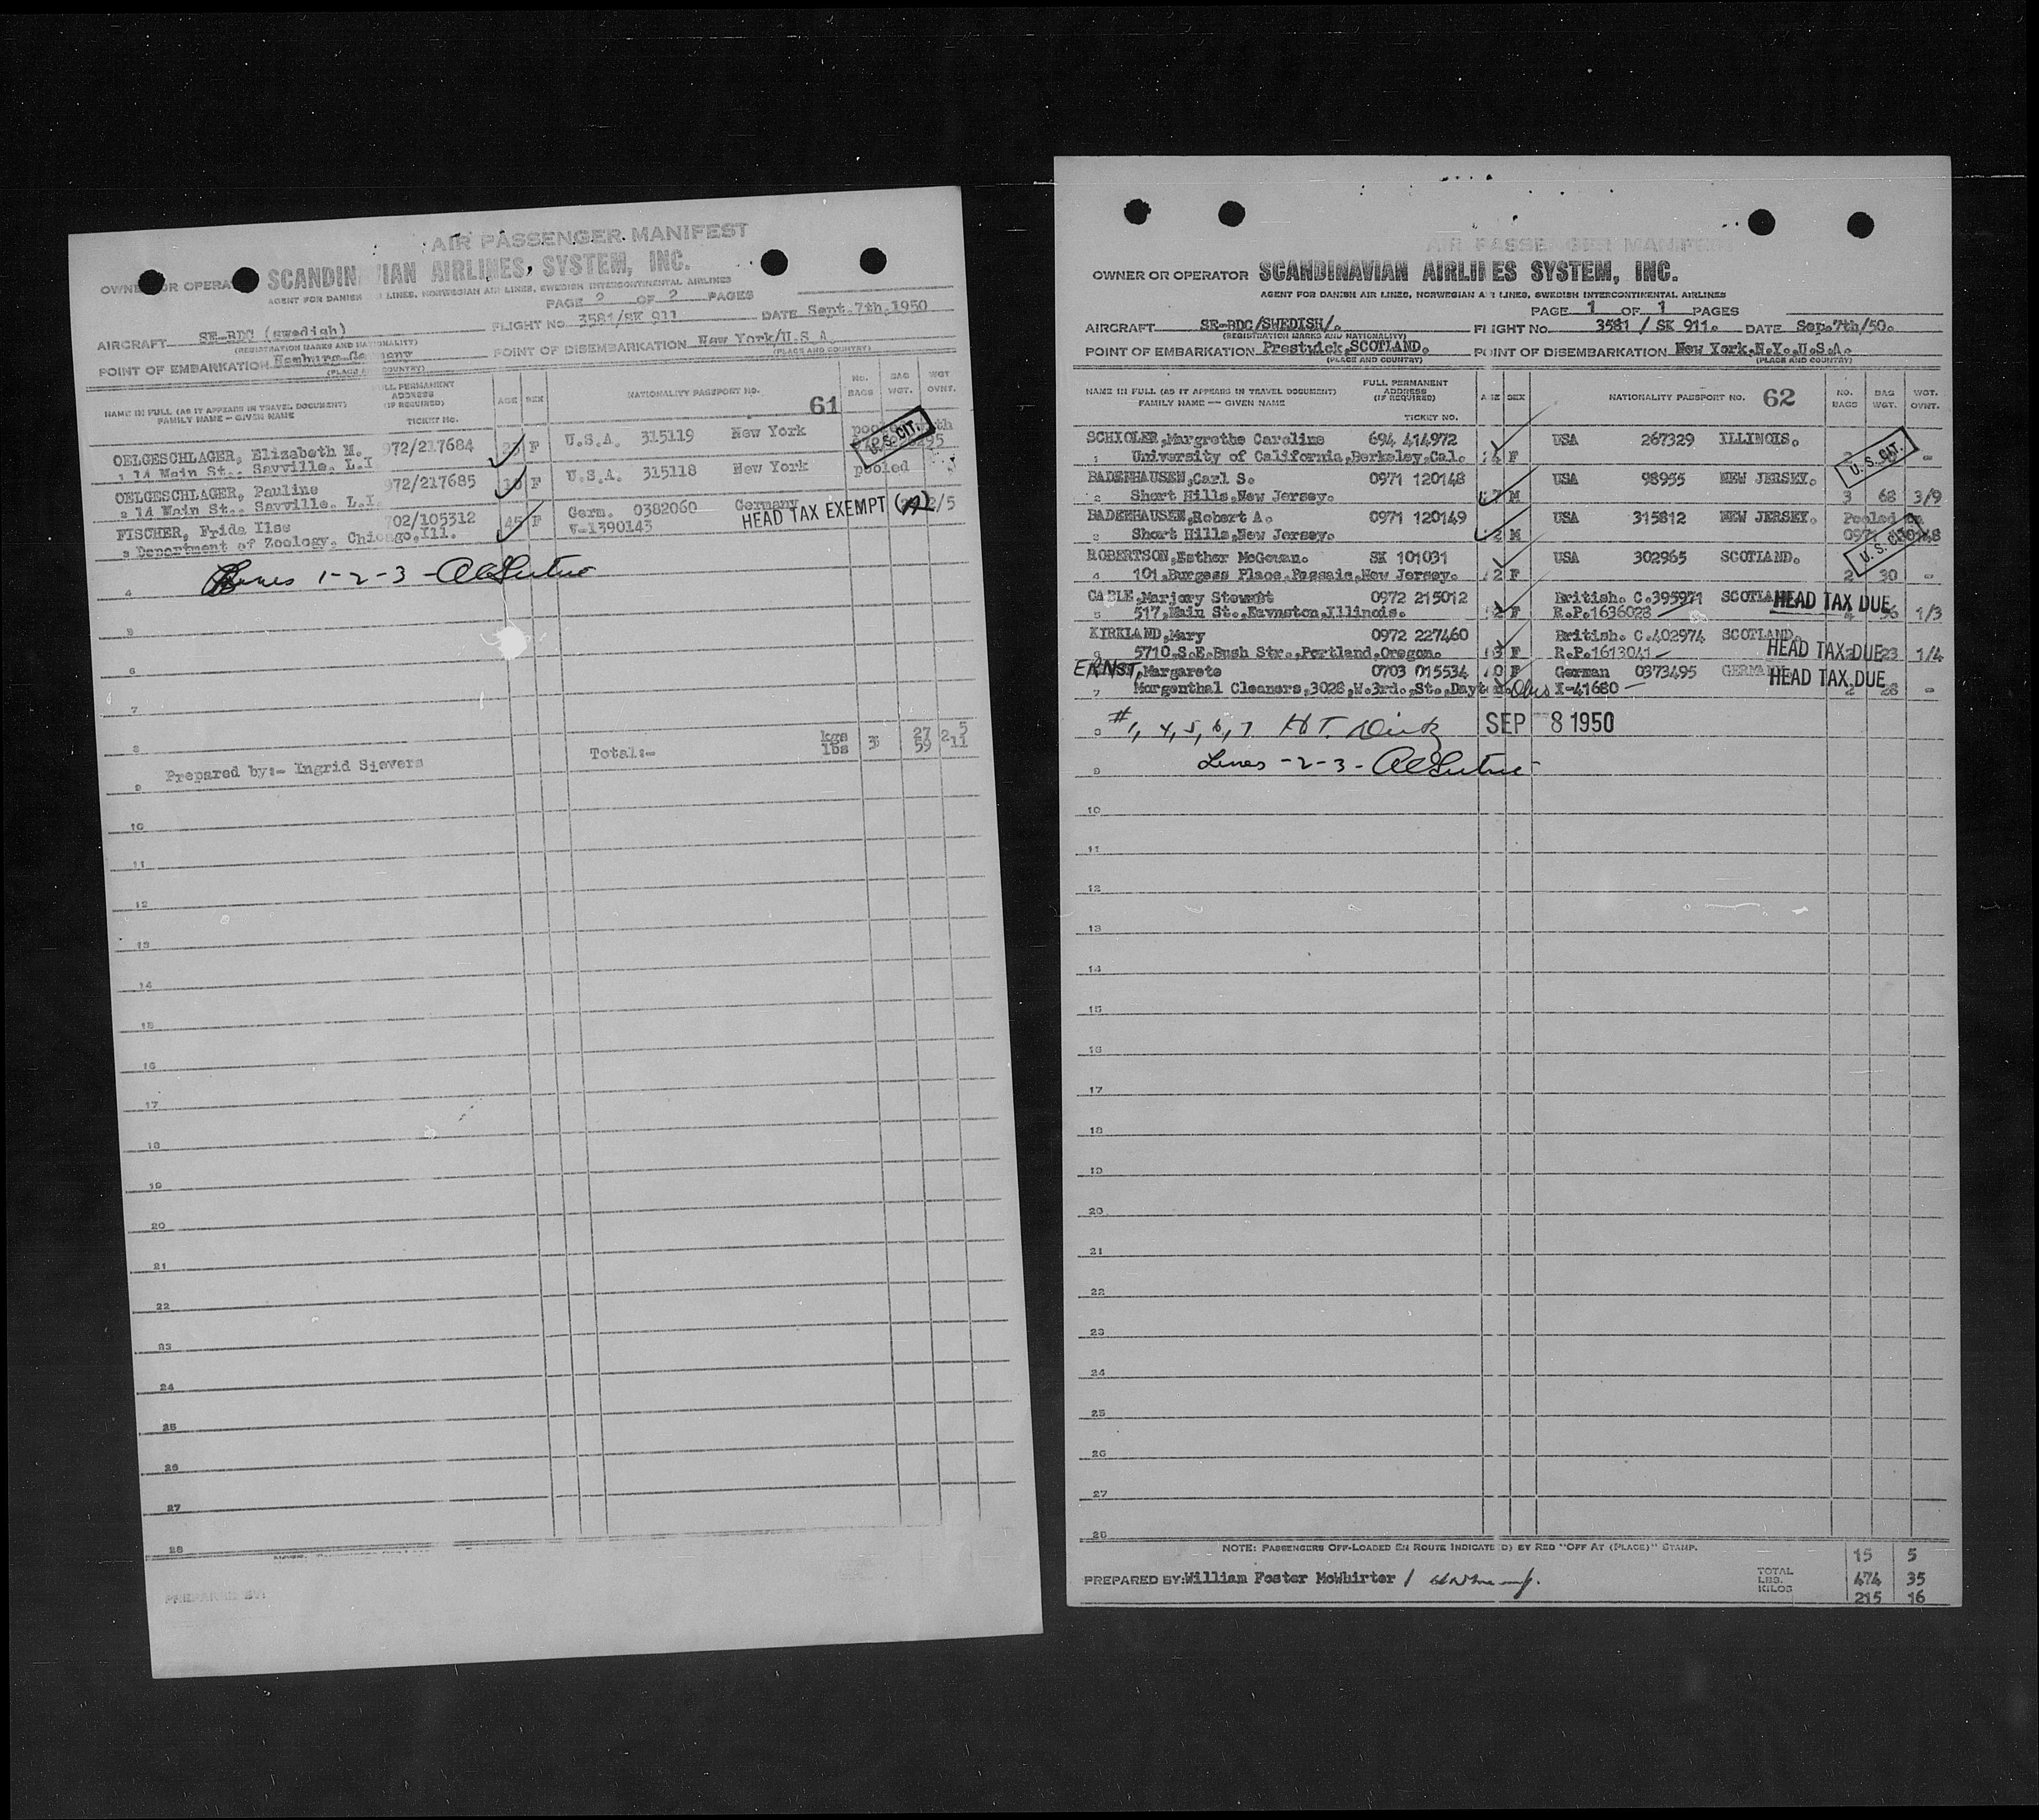 AIR PASSENGER MANIFEST
OWNER OR OPERA SCANDIN VIAN AIRLINES, SYSTEM, INC.
AGENT FOR DANISH LINES, NORWEGIAN AIR LINES, SWEDISH INTERCONTINENTAL AIRLINES
PAGE 2 OF 2 PAGES
AIRCRAFT SE-BDC (swedish) FLIGHT NO. 3581/SK 911 DATE Sept.7th.1950
(REGISTRATION MARKS AND NATIONALITY)
POINT OF EMBARKATION Hamburg-Germany POINT OF DISEMBARKATION New York/U.S.A.
(PLACE AND COUNTRY) (PLACE AND COUNTRY)
NAME IN FULL (AS IT APPEARS IN TRAVEL DOCUMENT) FAMILY NAME — GIVEN NAME
FULL PERMANENT ADDRESS (IF REQUIRED) TICKET NO.
AGE SEX NATIONALITY PASSPORT NO. 61 NO. BAGS BAG WGT. WGT OVNT.
OELGESCHLAGER, Elizabeth M. 972/217684 F U.S.A. 315119 New York
1 14 Main St., Sayville. L.I U.S. CIT.
OELGESCHLAGER, Pauline 972/217685 F U.S.A. 315118 New York pooled
2 14 Main St., Sayville. L.I.
FISCHER, Frida Ilse 702/105312 45 F Germ. 0382060 Germany 2/5
3 Department of Zoology, Chicago,Ill. V-1390143 HEAD TAX EXEMPT
4 Lines 1-2-3 -
5
6
7
8 Total:- kgs 27 5
lbs 3 59 2 11
Prepared by:- Ingrid Sievers
9
10
11
12
13
14
15
16
17
18
19
20
21
22
23
24
25
26
27
28
PREPARED BY:
AIR PASSENGER MANIFEST
OWNER OR OPERATOR SCANDINAVIAN AIRLINES SYSTEM, INC.
AGENT FOR DANISH AIR LINES, NORWEGIAN AIR LINES, SWEDISH INTERCONTINENTAL AIRLINES
PAGE 1 OF 1 PAGES
AIRCRAFT SE-BDC/SWEDISH/. FLIGHT NO. 3581 / SK 911. DATE Sep.7th/50.
(REGISTRATION MARKS AND NATIONALITY)
POINT OF EMBARKATION Prestwick,SCOTLAND. POINT OF DISEMBARKATION New York.N.Y.U.S.A.
(PLACE AND COUNTRY) (PLACE AND COUNTRY)
NAME IN FULL (AS IT APPEARS IN TRAVEL DOCUMENT) FAMILY NAME — GIVEN NAME
FULL PERMANENT ADDRESS (IF REQUIRED) TICKET NO.
AGE SEX NATIONALITY PASSPORT NO. 62 NO. BAGS BAG WGT. WGT. OVNT.
SCHIOLER,Margrethe Caroline 694 414972 USA 267329 ILLINOIS.
1 University of California,Berkeley,Cal. F U.S. CIT. -
BADENHAUSEN,Carl S. 0971 120148 USA 98955 NEW JERSEY.
2 Short Hills,New Jersey. M 3 68 3/9
BADENHAUSEN,Robert A. 0971 120149 USA 315812 NEW JERSEY. Pooled on
3 Short Hills,New Jersey. M 0971 120148
U.S. CIT.
ROBERTSON,Esther McGowan. SK 101031 USA 302965 SCOTLAND.
4 101,Burgess Place,Passaic,New Jersey. F 2 30 -
CABLE,Marjory Stewart 0972 215012 British. C.395971 SCOTLAND HEAD TAX DUE
5 517,Main St.,Eavnston,Illinois. F R.P.1636028 4 56 1/3
KIRKLAND,Mary 0972 227460 British. C.402974 SCOTLAND.
6 5710,S.E.Bush Str.,Portland,Oregon. F R.P.1613041 HEAD TAX DUE 23 1/4
ERNST,Margarete 0703 015534 F German 0373495 GERMANY HEAD TAX DUE
7 Morgenthal Cleaners,3028,W.3rd.,St.,Dayton. Ohio X-41680 2 28 -
8 #1, 4, 5, 6, 7 HT. SEP 8 1950
9 Lines -2-3-
10
11
12
13
14
15
16
17
18
19
20
21
22
23
24
25
26
27
28
NOTE: PASSENGERS OFF-LOADED EN ROUTE INDICATE(D) BY RED "OFF AT (PLACE)" STAMP.
PREPARED BY:William Foster McWhirter /
TOTAL 15 5
LBS. 474 35
KILOS 215 16